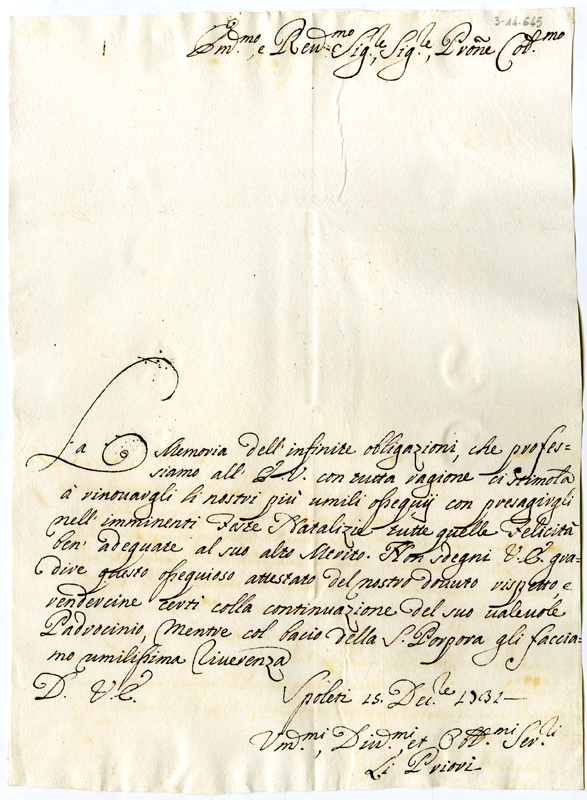 3-14-645
Em.mo, e Rev.mo Sig.le, Sig.le, Prone Col.mo
La Memoria dell'infinite obligazioni, che profes=
siamo all'E.V. con tutta ragione ci stimola
à rinovargli li nostri più umili ossequij con presagirgli
nell'imminenti Feste Natalizie tutte quelle Felicità
ben' adequate al suo alto Merito. Non sdegni V.E. gra=
dire questo ossequioso attestato del nostro dovuto rispetto, e
rendercine certi colla continuazione del suo valevole
Padrocinio, Mentre col bacio della S. Porpora gli faccia=
mo umilissima riverenza
D. V.E. Spoleti 15. Dec.le 1731
Um.mi, Div.mi, et Obb.mi Ser.li
Li Priori